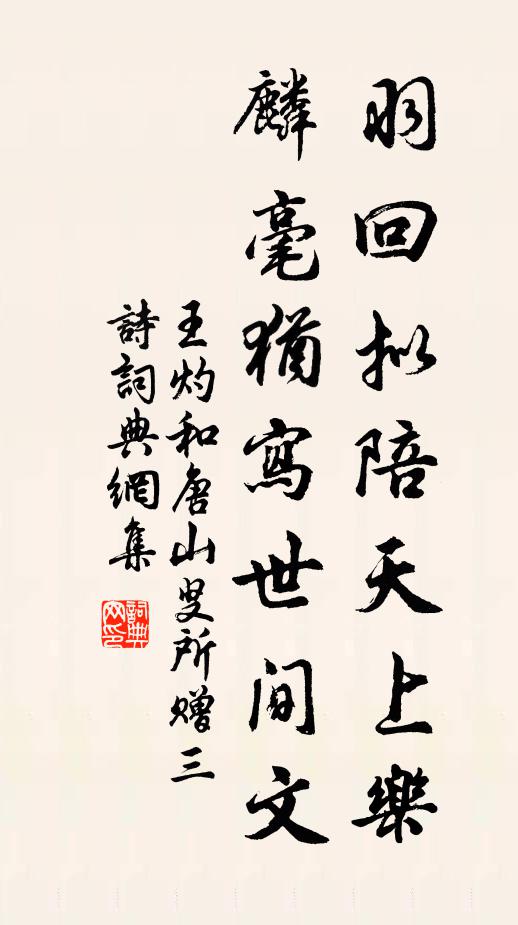 羽回拟陪天上樂
麟毫猶寫世间文
王灼和唐山叟所赠三
詩詞典網集
詞典
网印